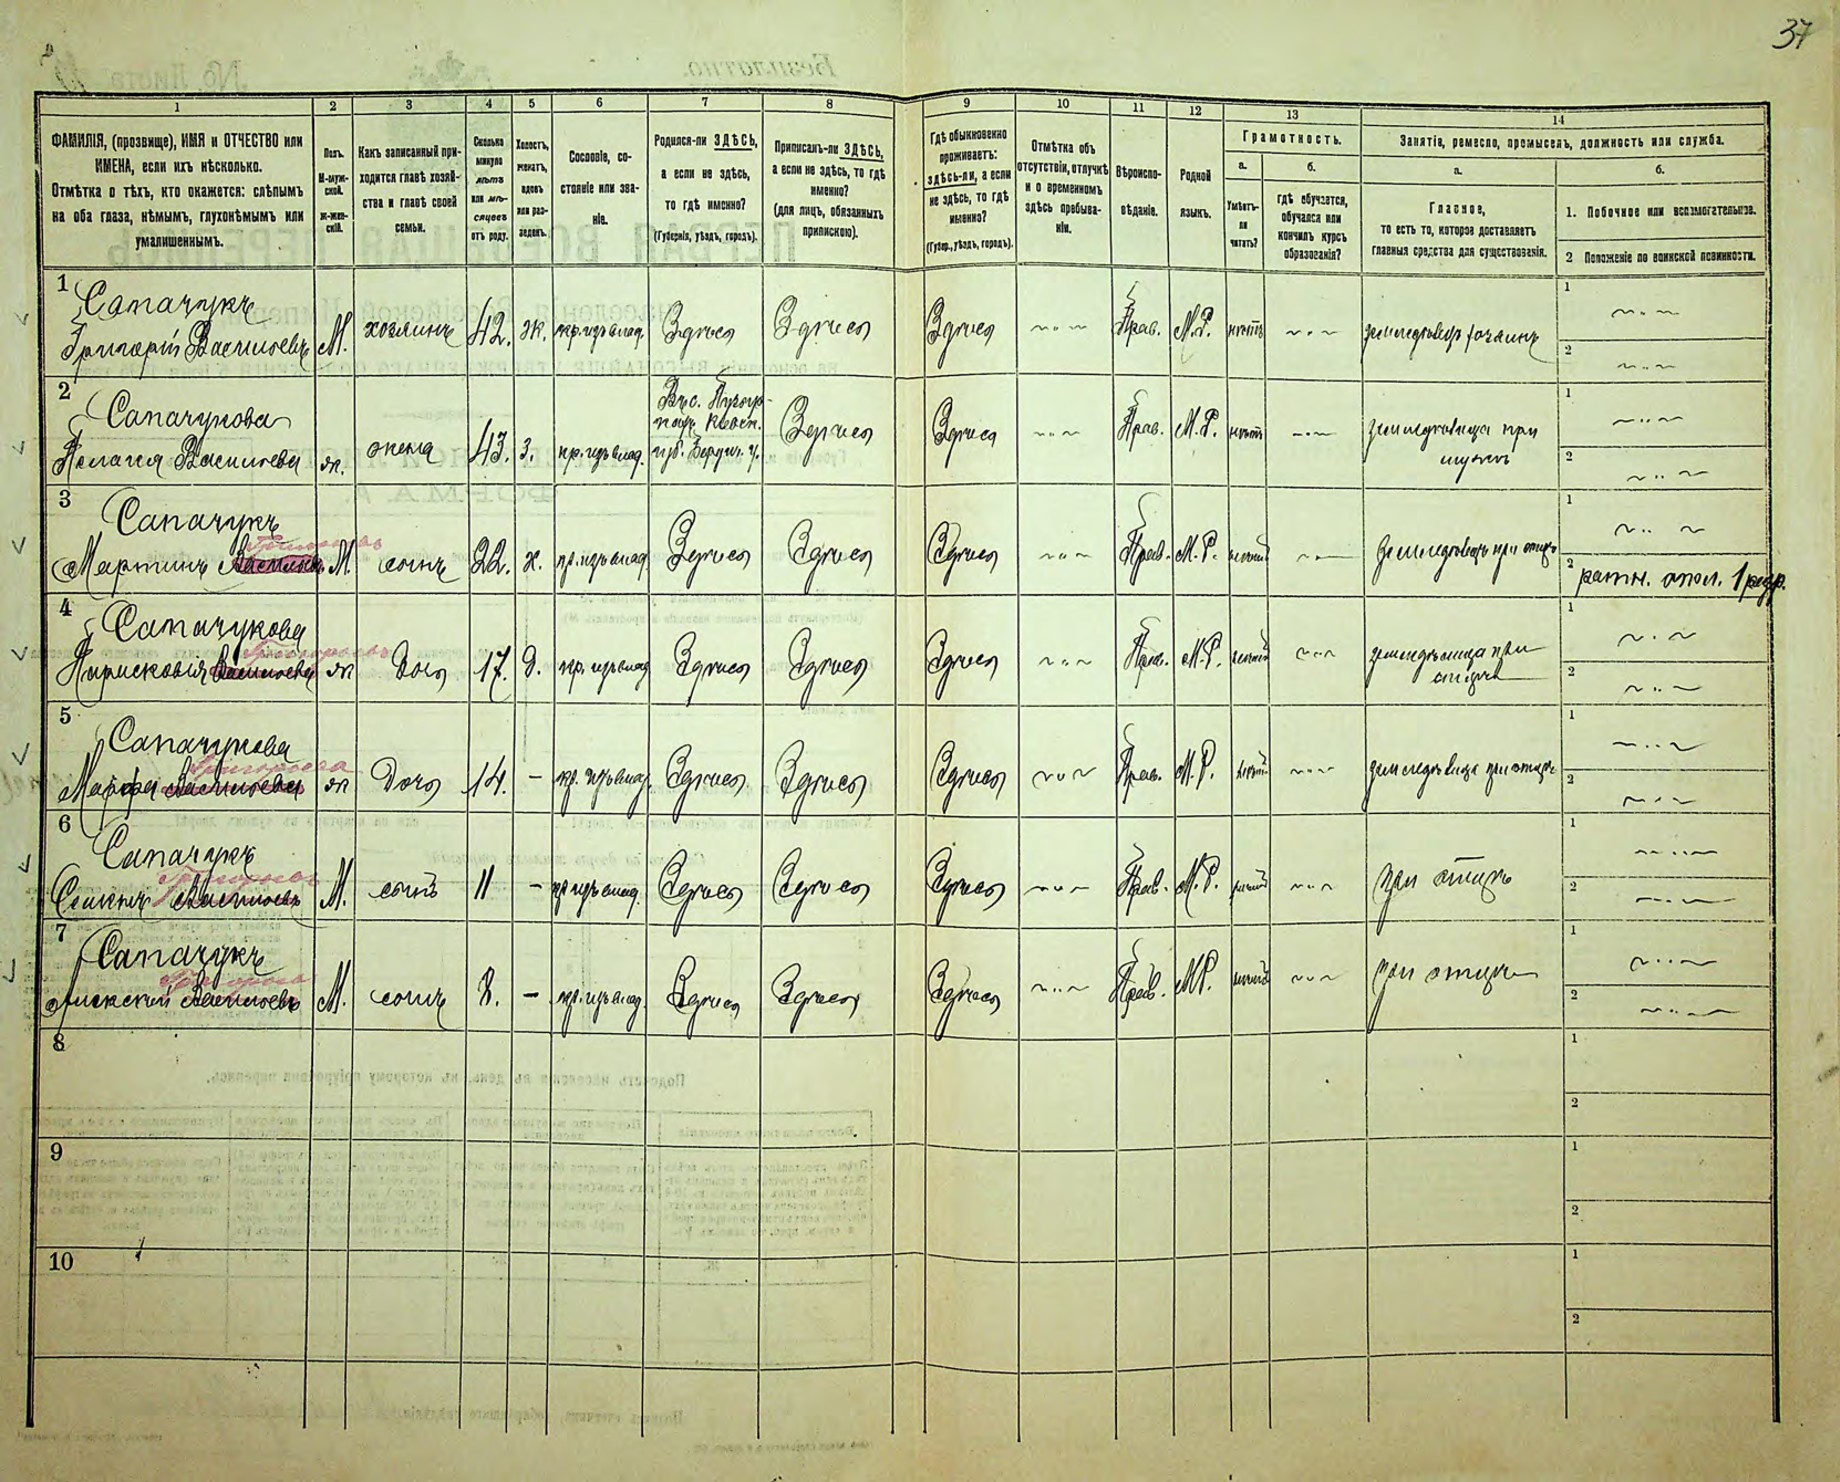 37
1 2 3 4 5 6 7 8 9 10 11 12 13 14
ФАМИЛІЯ, (прозвище), ИМЯ и ОТЧЕСТВО или
ИМЕНА, если ихъ нѣсколько.
Отмѣтка о тѣхъ, кто окажется: слѣпымъ
на оба глаза, нѣмымъ, глухонѣмымъ или
умалишеннымъ.
Полъ.
М-муж-
ской.
ж-жен-
скій.
Какъ записанный при-
ходится главѣ хозяй-
ства и главѣ своей
семьи.
Сколько
минуло
лѣтъ
или мѣ-
сяцевъ
отъ роду.
Холостъ,
женатъ,
вдовъ
или раз-
веденъ.
Сословіе, со-
стояніе или зва-
ніе.
Родился-ли ЗДѢСЬ,
а если не здѣсь,
то гдѣ именно?
(Губернія, уѣздъ, городъ).
Приписанъ-ли ЗДѢСЬ,
а если не здѣсь, то гдѣ
именно?
(для лицъ, обязанныхъ
припискою).
Гдѣ обыкновенно
проживаетъ:
здѣсь-ли, а если
не здѣсь, то гдѣ
именно?
(Губер., уѣздъ, городъ).
Отмѣтка объ
отсутствіи, отлучкѣ
и о временномъ
здѣсь пребыва-
ніи.
Вѣроиспо-
вѣданіе.
Родной
языкъ.
Грамотность.
а. б.
Умѣетъ-
ли
читать?
гдѣ обучается,
обучался или
кончилъ курсъ
образованія?
Занятіе, ремесло, промыселъ, должность или служба.
а. б.
Главное,
то есть то, которое доставляетъ
главныя средства для существованія.
1. Побочное или вспомогательное.
2 Положеніе по воинской повинности.
1
Сапачукъ
Григорій Васильевъ М. хозяинъ 42. ж. кр. изъ влад. Здѣсь Здѣсь Здѣсь Прав. М.Р. нѣтъ
1
2
2
Сапачукова
Пелагея Васильева ж. жена 43. з. кр. изъ влад. Здѣсь Здѣсь Прав. М.Р. нѣтъ
1
2
3
Сапачукъ
Мартинъ Григорьевъ М. сынъ 22. х. кр. изъ влад. Здѣсь Здѣсь Здѣсь Прав. М.Р. земледѣлецъ при отцѣ
1
2 ратн. опол. 1 разр.
4
Сапачукова
Григорьевъ ж Дочь 17. д. кр. изъ влад Здѣсь Здѣсь Здѣсь Прав. М.Р. земледѣлица при
отцѣ
1
2
5
Сапачукова
Марфа Григорьева ж Дочь 14. – кр. изъ влад. Здѣсь Здѣсь Здѣсь Прав. М.Р. земледѣлица при отцѣ
1
2
6
Сапачукъ
Григорьевъ М. сынъ 11 – кр изъ влад. Здѣсь Здѣсь Здѣсь Прав. М.Р. при отцѣ
1
2
7
Сапачукъ
Алексѣй М. сынъ 8. – кр. изъ влад. Здѣсь Здѣсь Здѣсь Прав. М.Р. при отцѣ
1
2
8
1
2
9
1
2
10
1
2